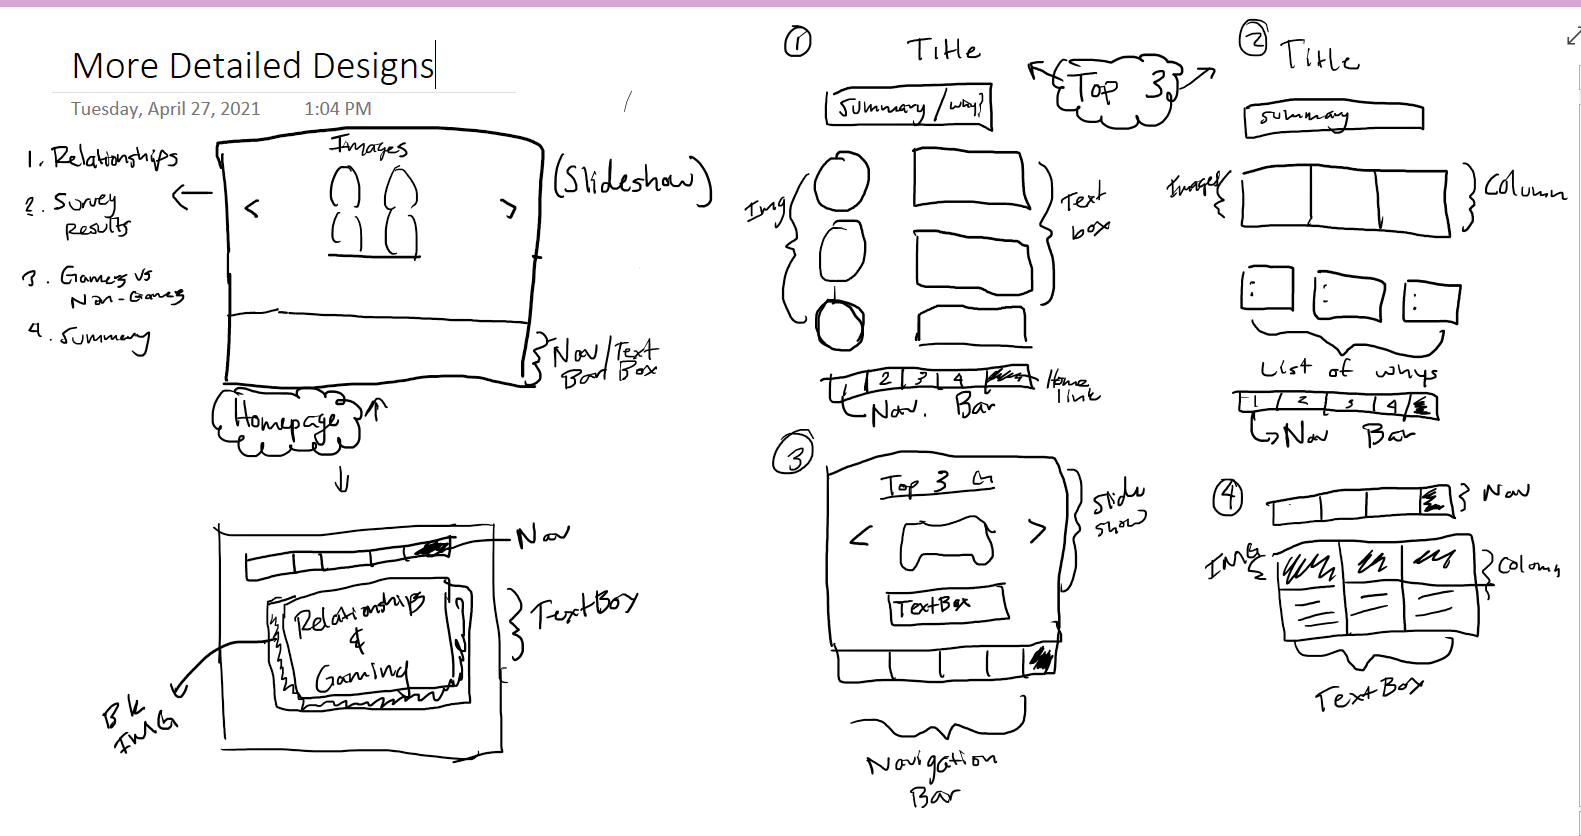 More Detailed Designs
Tuesday, April 27, 2021 1:04 PM
1. Relationships
2. Survey
Results
3. Gamers vs
Non-Games
4. Summary
Images
< >
(Slideshow)
Nav/Text
Bar Box
Homepage
Nav
Relationships
&
Gaming
TextBox
BK
IMG
1
Title
Summary/why?
Top 3
Img
Text
box
1 2 3 4
Home
link
Nav. Bar
2
Title
Summary
Images
Column
: : :
List of whys
1 2 3 4
Nav Bar
3
Top 3 G
< >
Slide
show
TextBox
Navigation
Bar
4
Nav
IMG
Column
TextBox